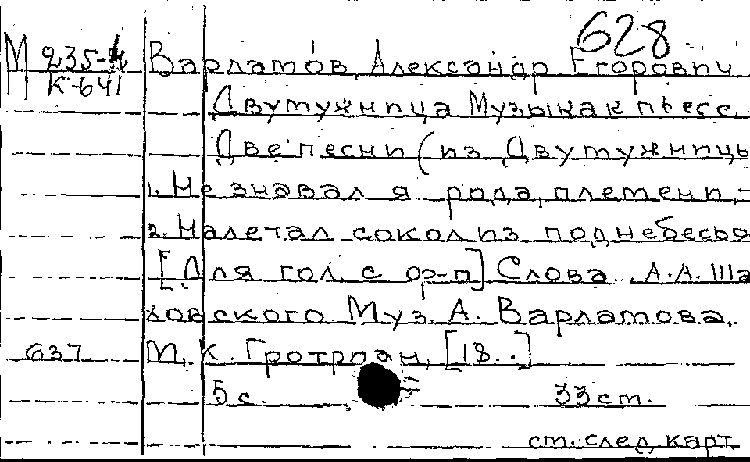 628
М 235-4 Варламов, Александр Егорович
К-641
Двумужница Музыка к пьесе
Две песни (из Двумужницы
1. Не знавал я рода, племени,-
2. Налетал сокол из поднебесья
[Для гол. с ф-п] Слова А.А. Ша
ховского Муз. А. Варламова.
637 М, К. Гротриан, [18..]
5 с. 33 ст.
ст. след. карт